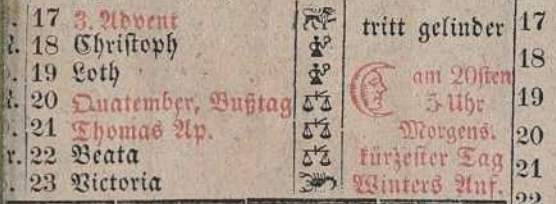 17 3. Advent tritt gelinder 17
18 Chriſtoph 18
19 Loth am 20ſten 19
20 Quatember, Bußtag 5 Uhr 20
21 Thomas Ap. Morgens. 21
r. 22 Beata kürzeſter Tag
23 Victoria Winters Anf.